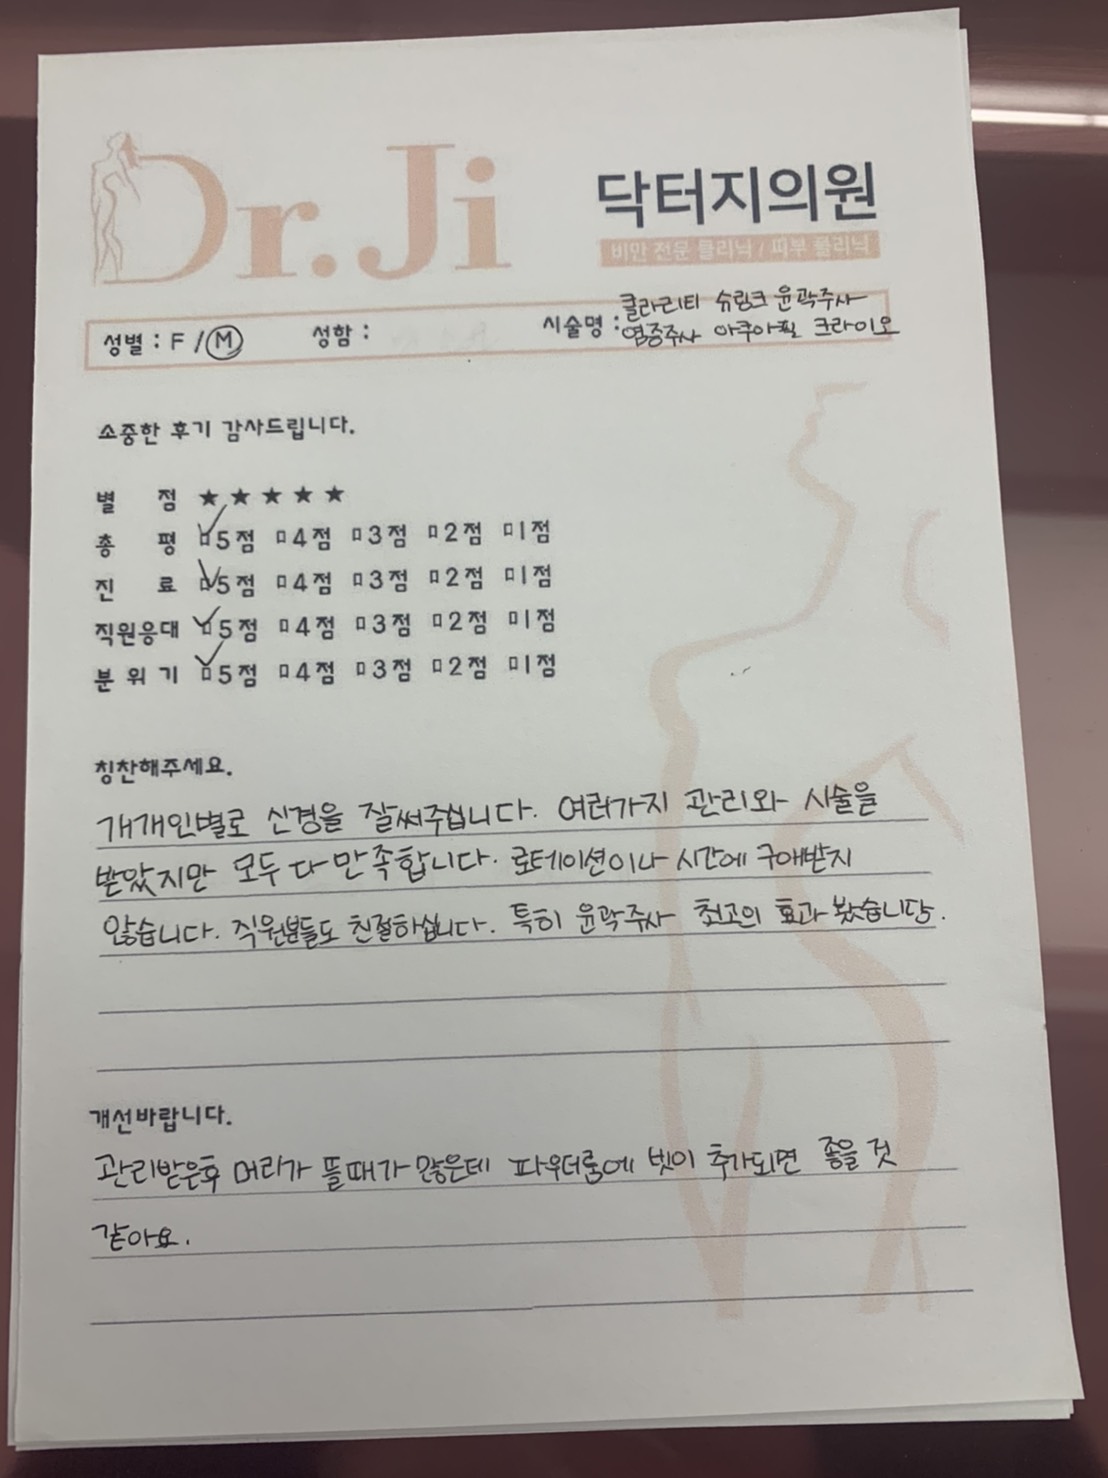 Dr.Ji
닥터지의원
비만 전문 클리닉 / 피부 클리닉
성별 : F / M 성함 : 시술명 : 클라리티 슈링크 윤곽주사
염증주사 아쿠아필 크라이오
소중한 후기 감사드립니다.
별 점 ★★★★★
총 평 □5점 □4점 □3점 □2점 □1점
진 료 □5점 □4점 □3점 □2점 □1점
직원응대 □5점 □4점 □3점 □2점 □1점
분 위 기 □5점 □4점 □3점 □2점 □1점
칭찬해주세요.
개개인별로 신경을 잘써주십니다. 여러가지 관리와 시술을
받았지만 모두 다 만족합니다. 로테이션이나 시간에 구애받지
않습니다. 직원분들도 친절하십니다. 특히 윤곽주사 최고의 효과 봤습니당.
개선바랍니다.
관리받은후 머리가 뜰때가 많은데 파우더룸에 빗이 추가되면 좋을 것
같아요.